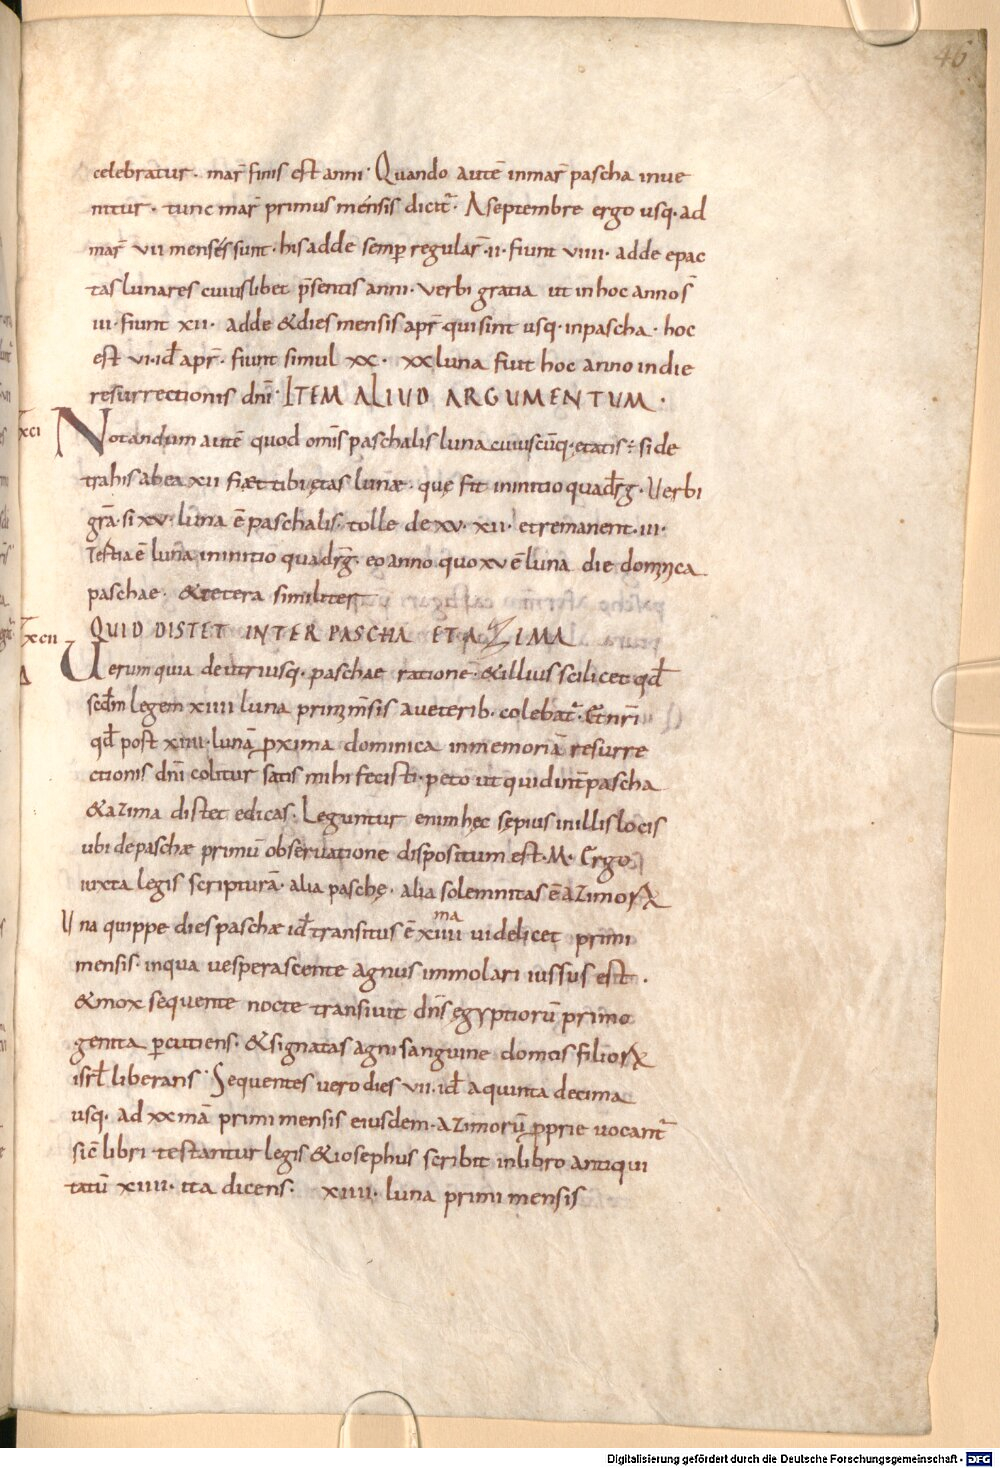 46
celebratur. mar̄ finis est anni. Quando autē inmar̄ pascha inue
nitur. tunc mar̄ primus mensis dicit̄. A septembre ergo usq. ad
mar̄ vii menses sunt. his adde semp̱ regular̄. ii. fiunt viiii. adde epac
tas lunares cuiuslibet p̄sentis anni. verbi gratia ut in hoc anno s̄
iii. fiunt xii. adde & dies mensis apr̄. qui sint usq. in pascha. hoc
est vi. id apr̄. fiunt simul xx. xx luna fiut hoc anno in die
resurrectionis dnī. ITEM ALIUD ARGUMENTUM.
xci Notandum autē quod omīs paschalis luna cuiuscūq. ętatis. si de
trahis ab ea xii fiæt tibi ętas lunæ. quę fit in initio quadr̄g. Verbi
grā. si xv. luna ē paschalis. tolle de xv. xii. et remanent. iii.
Tertia ē luna in initio quadr̄g. eo anno quo xv ē luna die domīica
paschae. & cetera similiter
xcii QUID DISTET INTER PASCHA ET AZIMA
Uerum quia de utriusq. paschae ratione. & illius scilicet qd
scdm legem xiiii luna prim̄ m̄sis a ueterib. colebat̄. Et nr̄i
qd post xiiii. lunā p̱xima dominica in memoriā resurre
ctionis dnī colitur satis mihi fecisti. peto ut quid int̄ pascha
& azima distet edicas. Leguntur enim hęc sępius in illis locis
ubi de paschæ primū obseruatione dispositum est. M. Ergo
iuxta legis scripturā. alia paschę. alia solemnitas ē azimorꝝ
Una quippe dies paschæ id transitus ē xiiii ma uidelicet primi
mensis. in qua uesperascente agnus immolari iussus est.
& mox sequente nocte transiuit dn̄s ęgyptiorū primo
genita p̱cutiens. & signatas agni sanguine domos filiorꝝ
isrł liberans. Sequentes uero dies vii. id a quinta decima
usq. ad xx mā primi mensis eiusdem. azimorū p̱prie uocant̄
sic̄ libri testantur legis & iosephus scribit in libro antiqui
tatū xiiii. ita dicens. xiiii. luna primi mensis
Digitalisierung gefördert durch die Deutsche Forschungsgemeinschaft - DFG